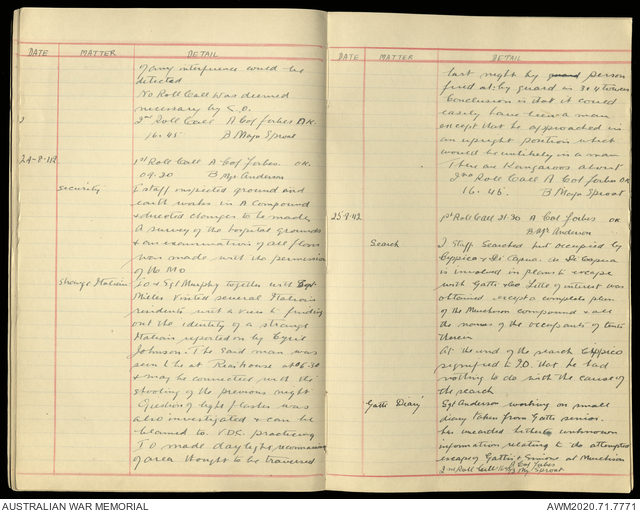 DATE MATTER DETAIL
of any interference would be
detected
No Roll Call was deemed
necessary by C.O.
2nd Roll Call A Col Forbes OK.
16.45 B Major Sproat
24-8-42 1st Roll Call A Col Forbes. OK.
09.30 B Mjr Anderson
security I staff inspected ground and
earth works in A Compound
& directed changes to be made
A survey of the hospital grounds
& an examination of all floors
was made with the permission
of the MO
strange Italian I.O & Sgt Murphy together with Capt
Miller visited several Italian
residents with a view to finding
out the identity of a strange
Italian reported on by Cyril
Johnson. The said man was
seen to be at Rens house at 06.30
& may be connected with the
shooting of the previous night
Question of light flashes was
also investigated & can be
blamed to VDC practicing
I.O made daylight reconnaissance
of area thought to be traversed
DATE MATTER DETAIL
last night by person
fired at by guard in 3 & 4 towers
Conclusion is that it could
easily have been a man
except that he approached in
an upright position which
would be unlikely in a man
There are Kangaroos about
2nd Roll Call A Col Forbes OK
16.45. B Major Sproat
25-8-42 1st Roll Call 21.30 A Col Forbes OK
B Mjr Anderson
Search I Staff Searched hut occupied by
Cippico & Di Capua. As Di Capua
is involved in plans to escape
with Gatti & Co Little of interest was
obtained except a complete plan
of the Murchison compound & all
the names of the occupants of tents
therein
At the end of the search Cippico
signified to I.O. that he had
nothing to do with the cause of
the search
Gatti Diary Sgt Anderson working on small
diary taken from Gatti senior.
has unearthed hitherto unknown
information relating to the attempted
escape of Gatti & Simone at Murchison
2nd Roll Call 16.45 A Col Forbes
B Mjr Sproat
AUSTRALIAN WAR MEMORIAL AWM2020.71.7771